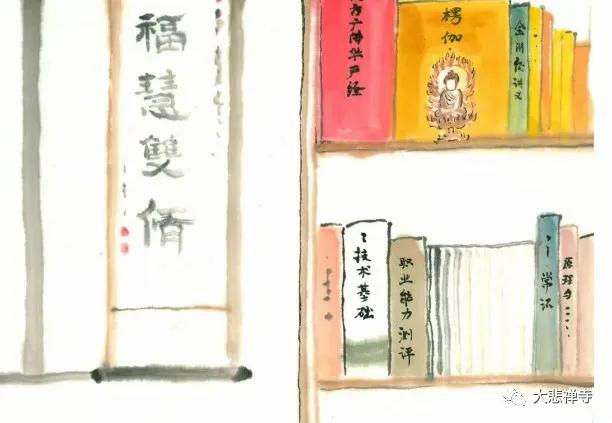 福慧雙脩
方广佛华严经
楞伽
金刚经讲义
技术基础
职业能力测评
常识
原理与
大悲禅寺